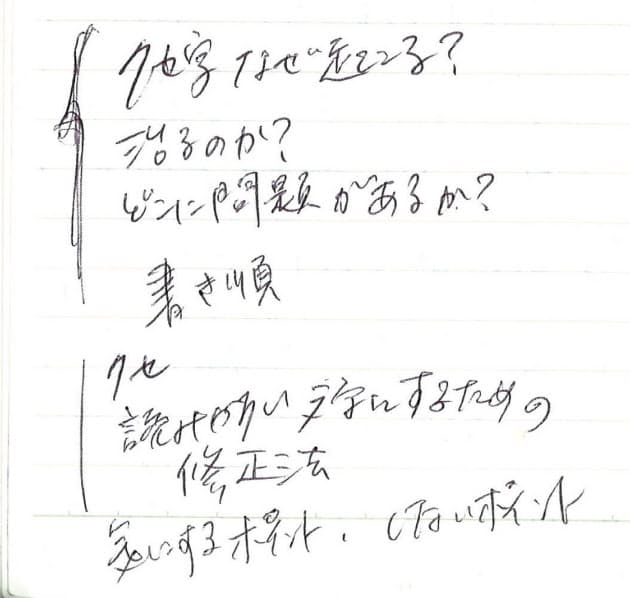 クセ字 なぜ起こる?
治るのか?
どこに問題があるか?
書き順
クセ
読みやすい文字にするための
修正法
気にするポイント、しないポイント